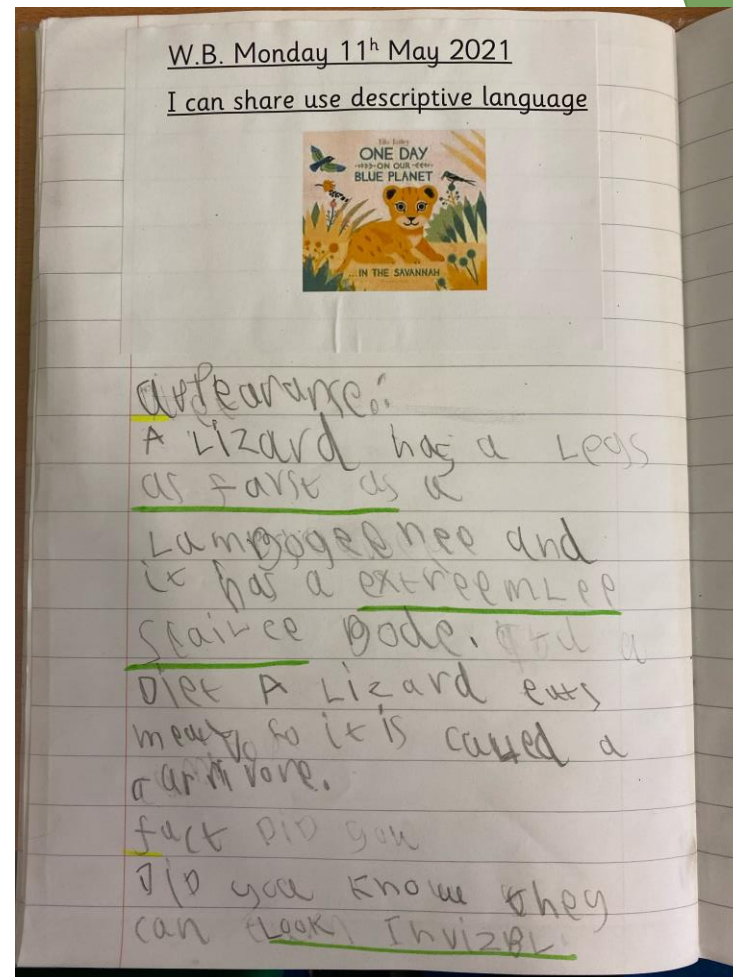 W.B. Monday 11h May 2021
I can share use descriptive language
ONE DAY
ON OUR
BLUE PLANET
...IN THE SAVANNAH
appearanse:
A Lizard has a Legs
as farst as a
Lambogeenee and
it has a extreemLee
scailee Bode. and a
Diet A Lizard euts
meat so it is caued a
carnivore.
fact DiD you
DiD you know they
can Look InvizBL.